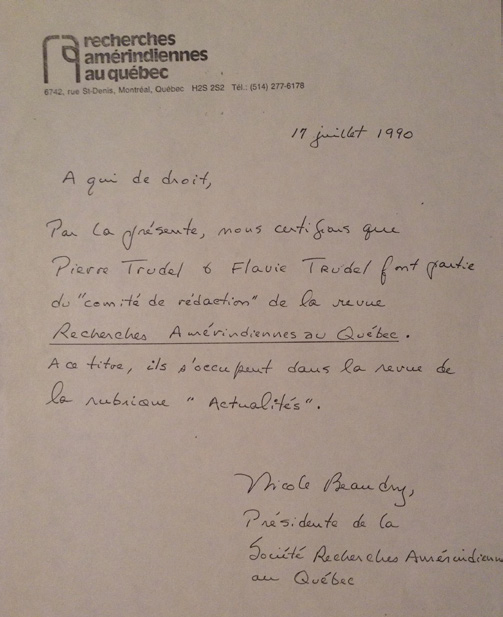 recherches
amérindiennes
au québec
6742, rue St-Denis, Montréal, Québec H2S 2S2 Tél.: (514) 277-6178
17 juillet 1990
A qui de droit,
Par la présente, nous certifions que
Pierre Trudel & Flavie Trudel font partie
du "comité de rédaction" de la revue
Recherches Amérindiennes au Québec.
A ce titre, ils s'occupent dans la revue de
la rubrique "Actualités".
Nicole Beaudry,
Présidente de la
Société Recherches Amérindienn
au Québec